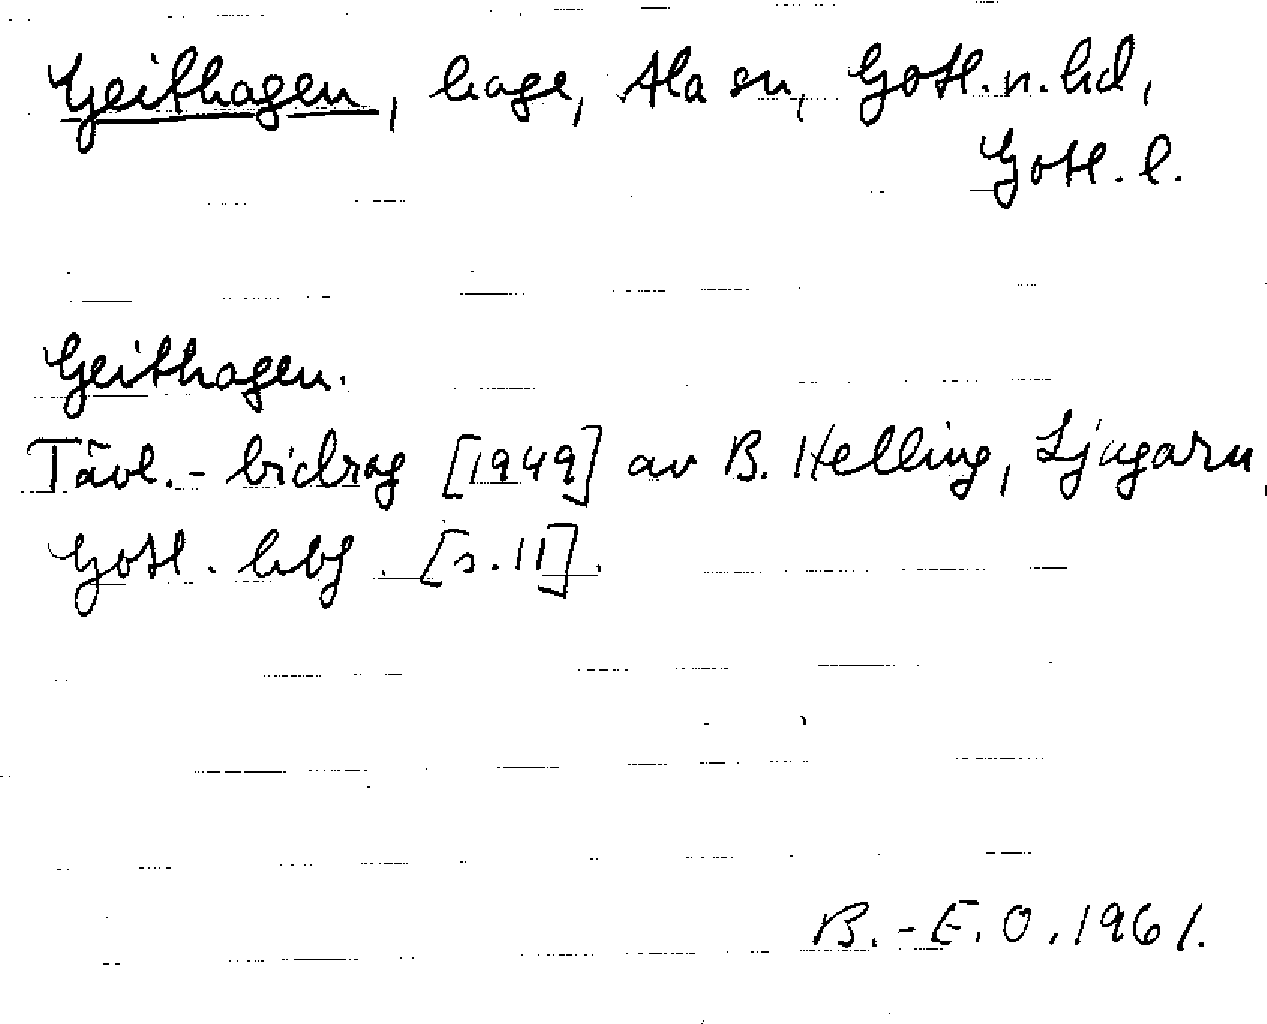 Geithagen, hage, Ala sn, Gotl. n. hd,
Gotl. l.
Geithagen.
Tävl.-bidrag [1949] av B. Helling, Ljugarn,
Gotl. hbf. [s. 11].
B.-E. O. 1961.